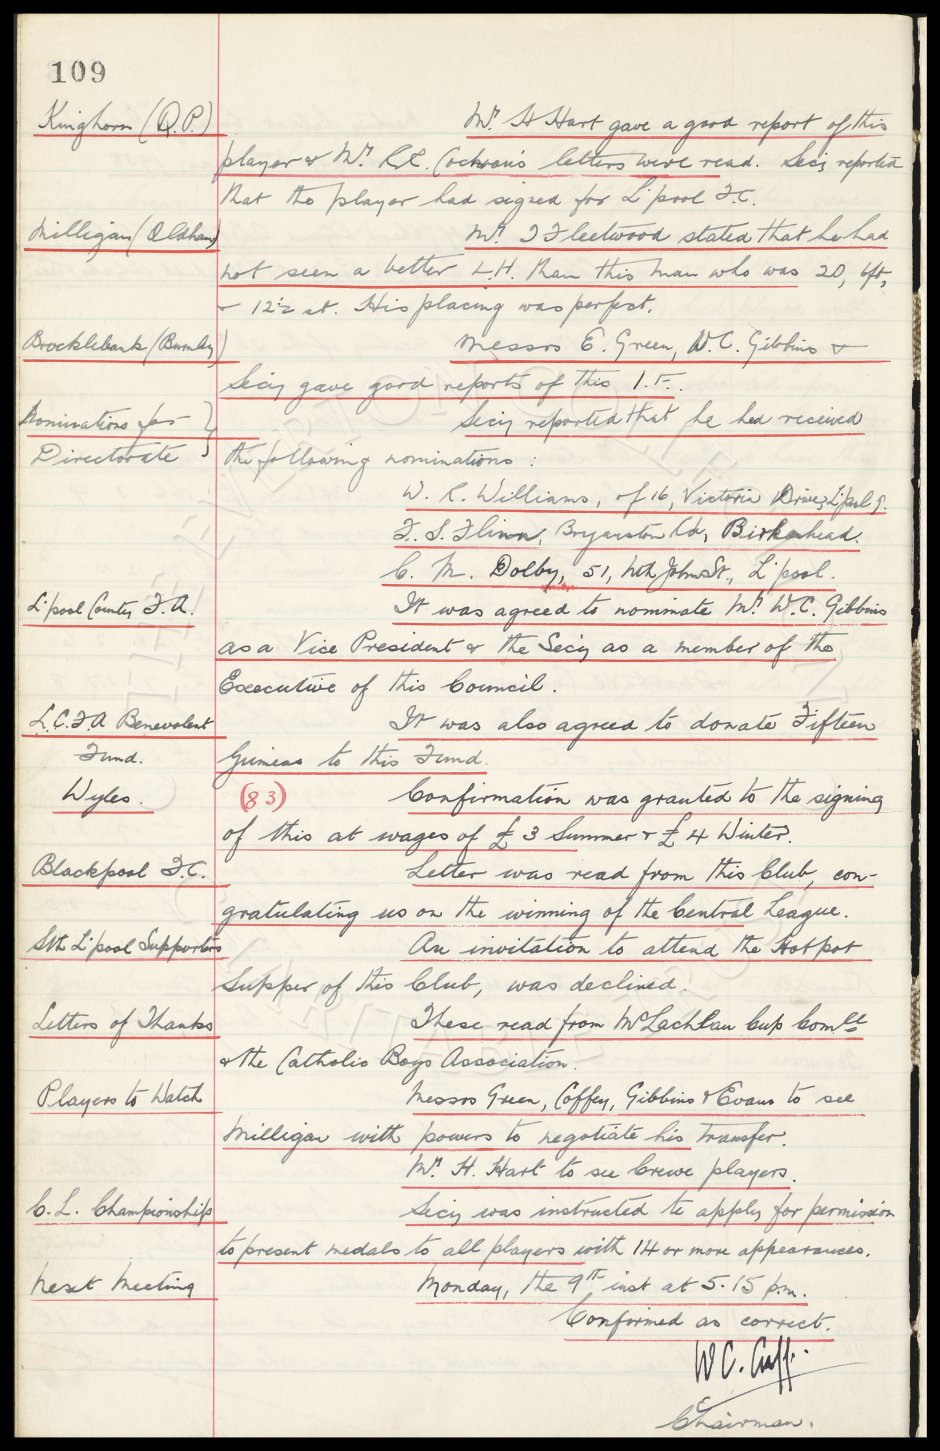 109
Kinghorn (Q.P.) Mr. H Hart gave a good report of this
player & Mr. letters were read. Secy reported
that the player had signed for L'pool F.C.
Milligan (Oldham) Mr. J Fleetwood stated that he had
not seen a better L.H. than this man who was 20, 6ft,
& 12½ st. His placing was perfect.
Brocklebank (Burnley) Messrs E. Green, W.C. Gibbins &
Secy gave good reports of this I.F.
Nominations for Secy reported that he had received
Directorate the following nominations:
W. R. Williams, of 16, Victoria Drive, L'pool 9.
F. S. Flinn, Bryanston Rd, Birkenhead.
C. M. Dolby, 51, Nth John St., L'pool.
L'pool County F.A. It was agreed to nominate Mr. W.C. Gibbins
as a Vice President & the Secy as a member of the
Executive of this Council.
L.C.F.A Benevolent It was also agreed to donate Fifteen
Fund. Guineas to this Fund.
Wyles. (83) Confirmation was granted to the signing
of this at wages of £3 Summer & £4 Winter.
Blackpool F.C. Letter was read from this Club, con-
gratulating us on the winning of the Central League.
Sth L'pool Supporters An invitation to attend the Hotpot
Supper of this Club, was declined.
Letters of Thanks These read from McLachlan Cup Comtt
& the Catholic Boys Association.
Players to Watch Messrs Green, Coffey, Gibbins & Evans to see
Milligan with powers to negotiate his transfer.
Mr. H. Hart to see Crewe players.
C.L. Championship Secy was instructed to apply for permission
to present medals to all players with 14 or more appearances.
Next Meeting Monday, the 9th inst at 5.15 p.m.
Confirmed as correct.
W C. Cuff.
Chairman.